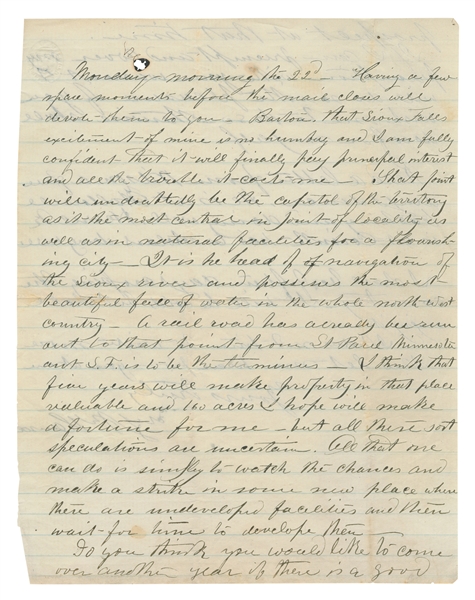 Monday - morning the 22d - Having a few
spare moments before the mail closes will
devote them to you - Barton. that Sioux Falls
excitement of mine is no humbug and I am fully
confident that it will finally pay principal interest
and all the trouble it costs me - That point
will undoubtedly be the capitol of the territory
as it the most central in point of locality as
well as in natural facilities for a flourish-
ing city - It is the head of navigation of
the Sioux river and possesses the most
beautiful fall of water in the whole north west
country - A rail road has already been run
out to that point from St Paul Minnesota
and S.F. is to be the terminus - I think that
five years will make property in that place
valuable and 160 acres I hope will make
a fortune for me - but all these sort
speculations are uncertain. All that one
can do is simply to watch the chances and
make a strike in some new place where
there are undeveloped facilities and then
wait for time to develope them
Do you think you would like to come
over another year if there is a good